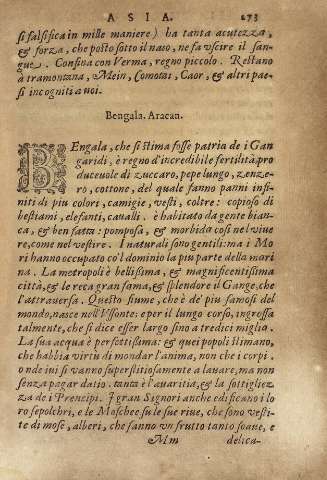 ASIA. 273
si falsifica in mille maniere) ha tanta acutezza,
& forza, che posto sotto il naso, ne fa vscire il san-
gue. Confina con Verma, regno piccolo. Restano
a tramontana, Mein, Comotai, Caor, & altri pae-
si incogniti a noi.
Bengala. Aracan.
BEngala, che si stima fosse patria de i Gan
garidi, è regno d'incredibile fertilità, pro
duceuole di zuccaro, pepe lungo, zenze-
ro, cottone, del quale fanno panni infi-
niti di piu colori, camigie, vesti, coltre: copioso di
bestiami, elefanti, caualli. è habitato da gente bian-
ca, & ben fatta: pomposa, & morbida cosi nel viue
re, come nel vestire. I naturali sono gentili: ma i Mo
ri hanno occupato co'l dominio la piu parte della mari
na. La metropoli è bellissima, & magnificentissima
città, & le reca gran fama, & splendore il Gange, che
l'attrauersa. Questo fiume, che è de' piu famosi del
mondo, nasce nell'Vssonte: e per il lungo corso, ingrossa
talmente, che si dice esser largo sino a tredici miglio.
La sua acqua è perfettissima: & quei popoli stimano,
che habbia virtù di mondar l'anima, non che i corpi.
onde iui si vanno superstitiosamente a lauare, ma non
senza pagar datio. tanta è l'auaritia, & la sottigliez
za de i Prencipi. I gran Signori anche edificano i lo
ro sepolchri, e le Moschee su le sue riue, che sono vesti-
te di mose, alberi, che fanno vn frutto tanto soaue, e
Mm delica-